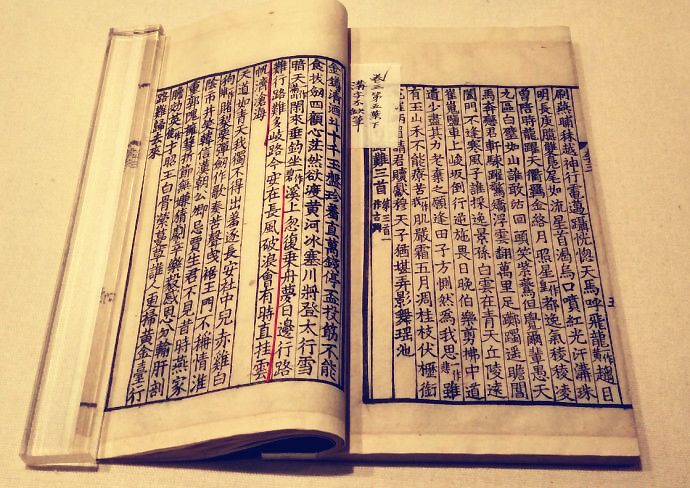 刷燕晡秣越神行電邁躡恍惚天馬呼飛龍趨目
明長庚臆雙鳧尾如流星首渴烏口噴紅光汗溝珠
曾陪時龍躍天衢羈金絡月照皇都逸氣稜稜凌
九區白璧如山誰敢沽回頭笑紫鷰但覺爾輩愚天
馬奔戀君軒駷躍驚矯浮雲翻萬里足躑躅遙瞻閶
闔門不逢寒風子誰採逸景孫白雲在青天丘陵遠
崔嵬鹽車上峻坂倒行逆施畏日晚伯樂剪拂中
道少盡其力老棄之願逢田子方惻然為我思雖
有玉山禾不能療苦飢嚴霜五月凋桂枝伏櫪銜
兩眉請君贖獻穆天子猶堪弄影舞瑤池
難三首 第三首一作古興
卷三第五葉下
滿字不缺筆
金樽清酒斗十千玉盤珍羞直萬錢停盃投筯不能
食拔劍四顧心茫然欲渡黃河冰塞川將登太行雪
暗天閑來垂釣坐碧溪上忽復乘舟夢日邊行路
難行路難多岐路今安在長風破浪會有時直挂雲
帆濟滄海
大道如青天我獨不得出羞逐長安社中兒赤雞白
狗賭梨栗彈劍作歌奏苦聲曳裾王門不稱情淮
陰市井笑韓信漢朝公卿忌賈生君不見昔時燕家
重郭隗擁篲折節無嫌猜劇辛樂毅感恩分輸肝剖
膽効英才昭王白骨縈蔓草誰人更掃黃金臺行
路難歸去來